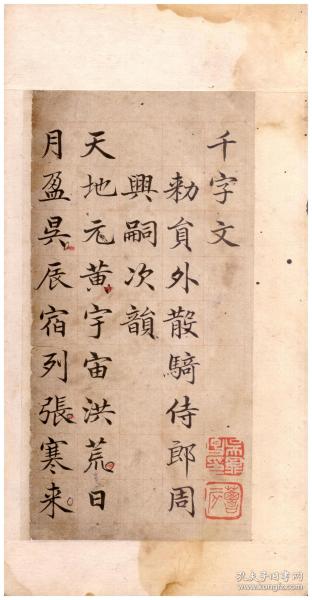 千字文
勅貟外散騎侍郎周
興嗣次韻
天地元黄宇宙洪荒日
月盈昃辰宿列張寒来
孔夫子旧书网